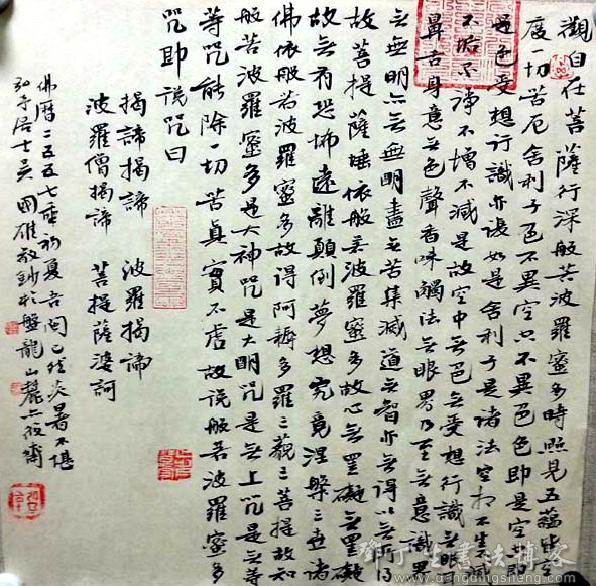 觀自在菩薩行深般若波羅蜜多時照見五蘊皆空
度一切苦厄舍利子色不異空空不異色色即是空空即
是色受想行識亦復如是舍利子是諸法空相不生不滅
不垢不淨不增不減是故空中無色無受想行識無眼耳
鼻舌身意無色聲香味觸法無眼界乃至無意識界
無無明亦無無明盡無苦集滅道無智亦無得以無所得
故菩提薩埵依般若波羅蜜多故心無罣礙無罣礙
故無有恐怖遠離顛倒夢想究竟涅槃三世諸
佛依般若波羅蜜多故得阿耨多羅三藐三菩提故知
般若波羅蜜多是大神咒是大明咒是無上咒是無等
等咒能除一切苦真實不虛故說般若波羅蜜多
咒即說咒曰
揭諦揭諦 波羅揭諦
波羅僧揭諦 菩提薩婆訶
佛曆二五五七秊初夏吉炎暑不堪
居士吳國雄敬鈔於盤龍山麓齋
鄧丁生書法博客
dengdingsheng.com